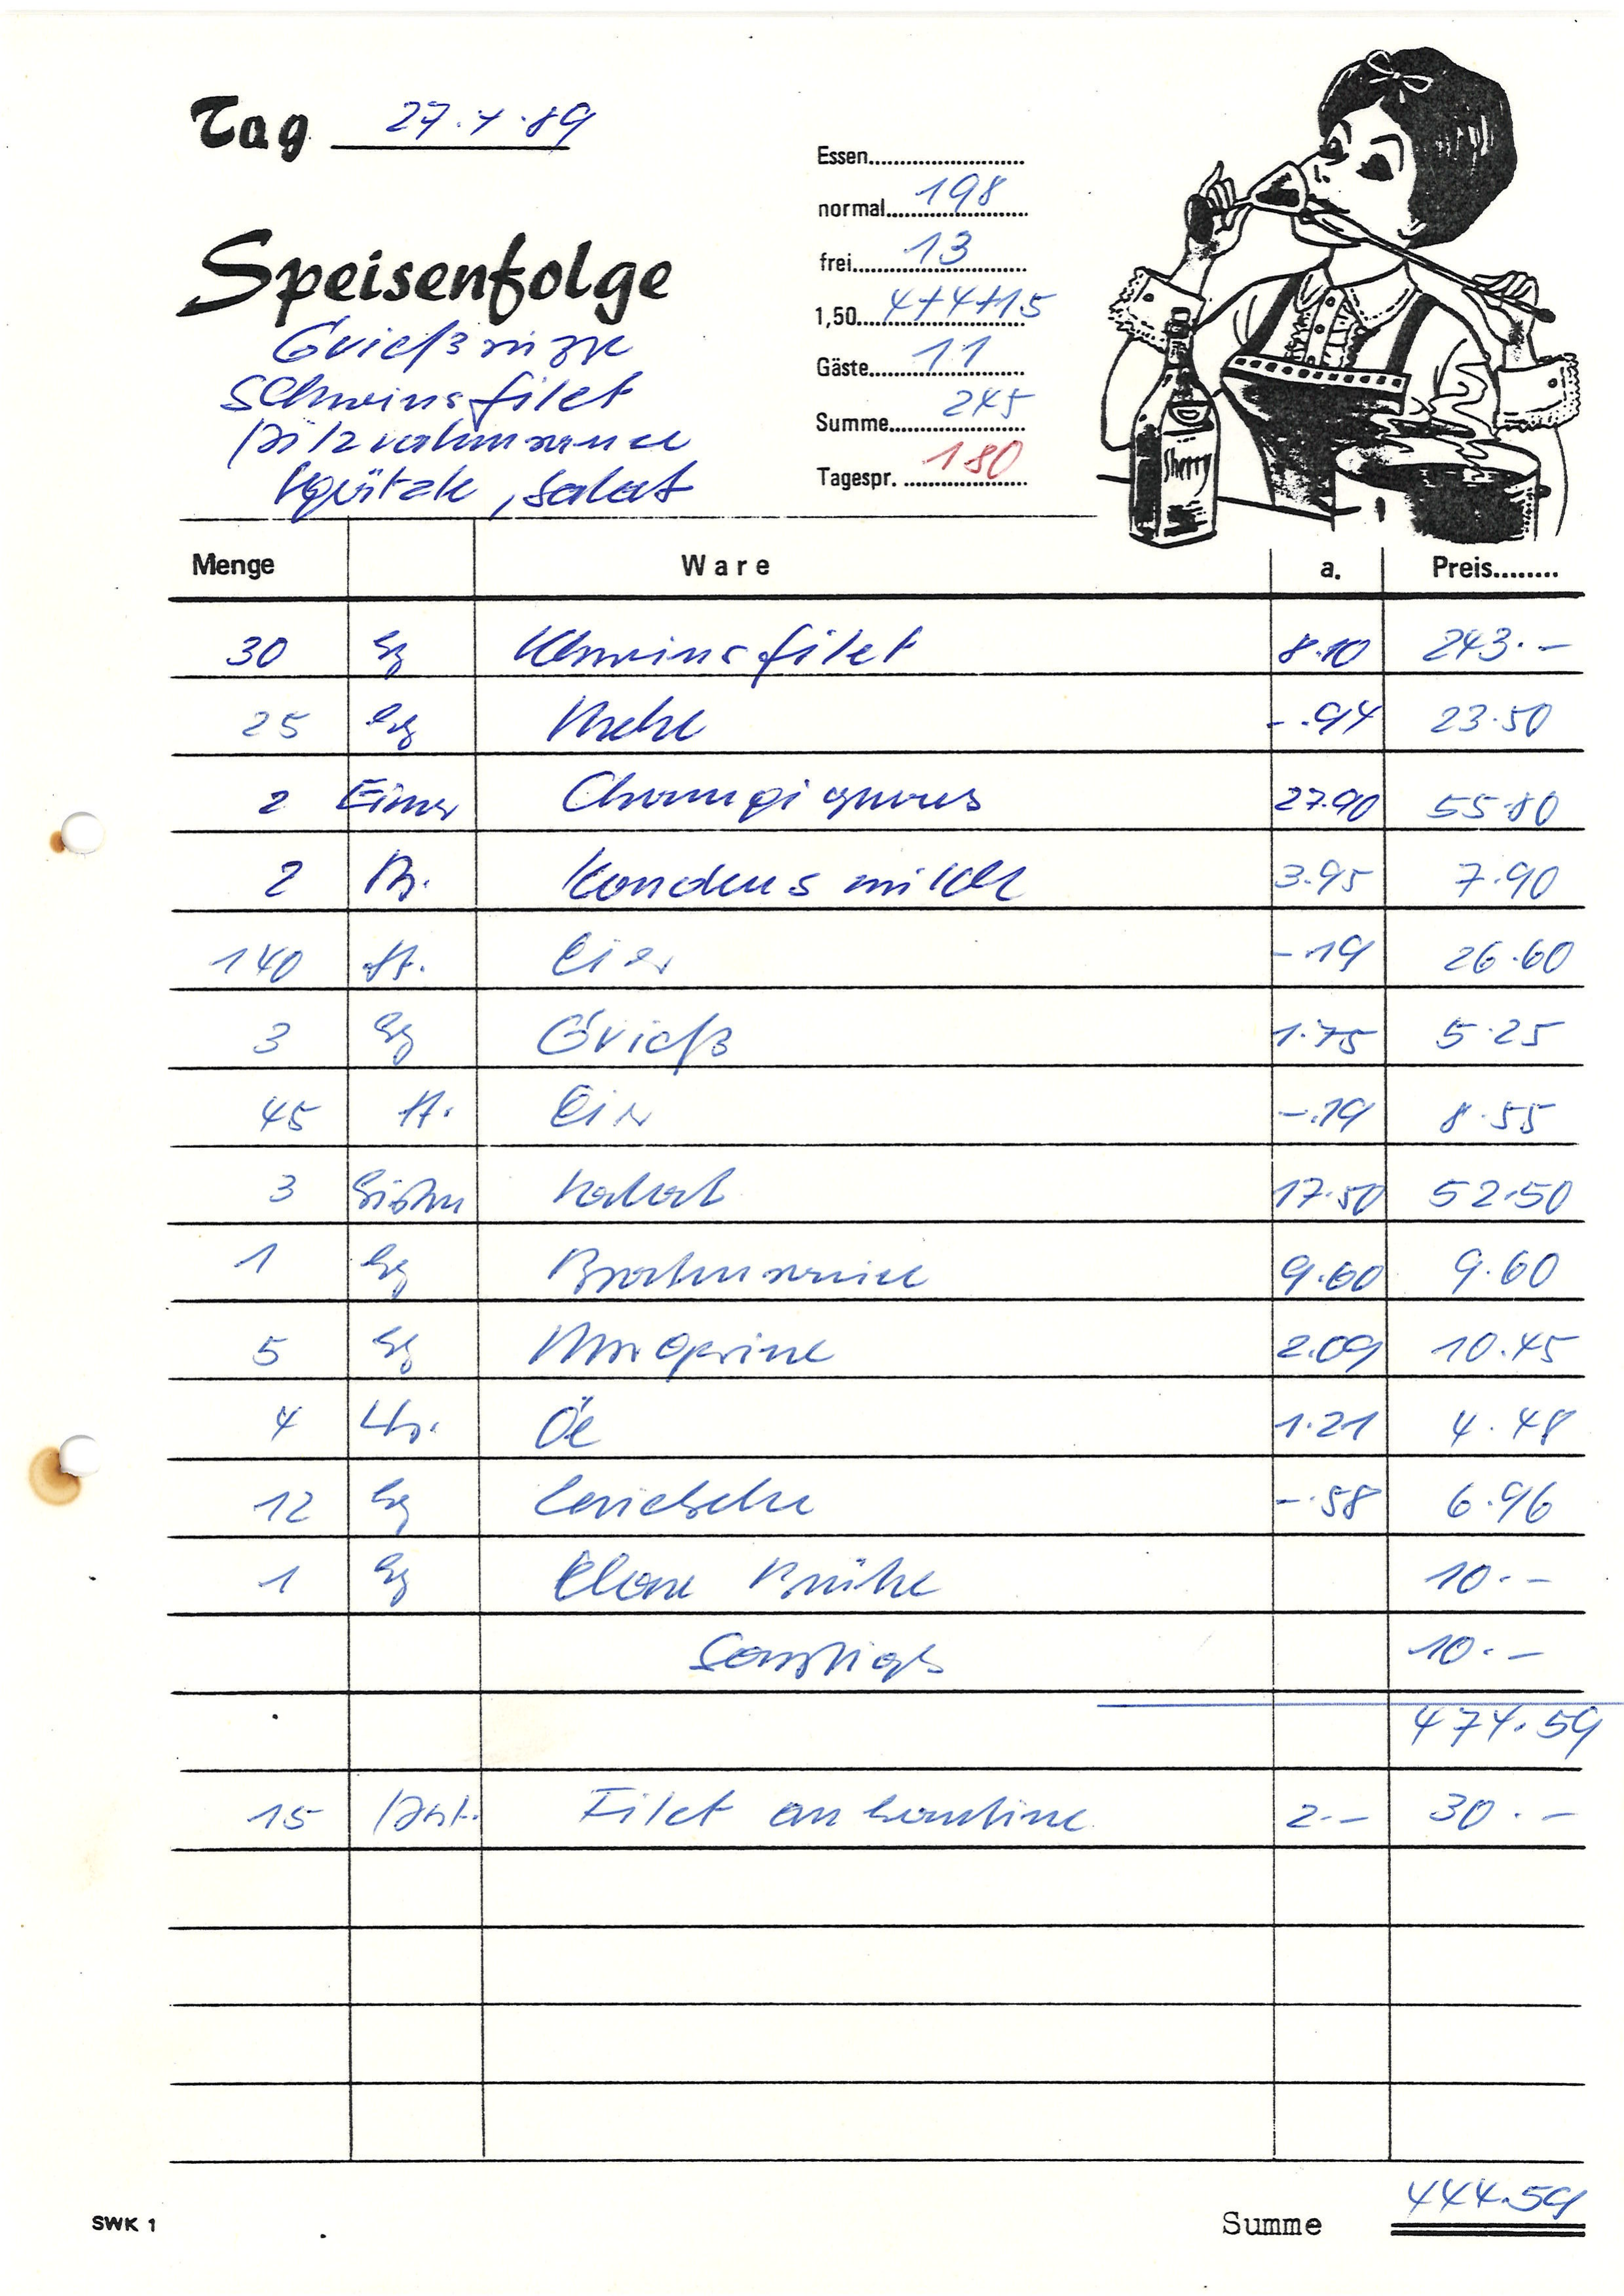 Tag 27.4.89
Essen
normal 198
frei 13
1,50 4+4+15
Gäste 11
Summe 245
Tagespr. 180
Speisenfolge
Grießsuppe
Schweinsfilet
Pilzrahmsauce
Spätzle, Salat
Sherry
Menge Ware a. Preis
30 Kg Schweinsfilet 8.10 243.-
25 Kg Mehl -.94 23.50
2 Eimer Champignons 27.90 55.80
2 Kondensmilch 3.95 7.90
140 St. Eier -.19 26.60
3 Kg Grieß 1.75 5.25
45 St. Eier -.19 8.55
3 Kisten Salat 17.50 52.50
1 Kg Bratensauce 9.60 9.60
5 Kg Margarine 2.09 10.45
4 Ltr. Öl 1.21 4.48
12 Kg -.58 6.96
1 Kg Klare Brühe 10.-
Sonstiges 10.-
474.59
15 Port. Filet an Kantine 2.- 30.-
SWK 1
Summe 444.59